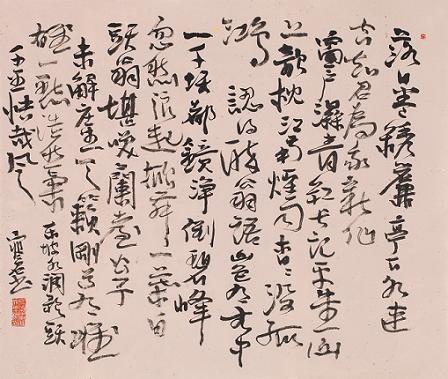 落日繡簾亭下水連
空知君為我新作
窗戶濕青紅長記平山堂
上欹枕江南煙雨杳杳沒孤
鴻認得醉翁語山色有無中
一千頃都鏡淨倒碧峰
忽然浪起掀舞一葉白
頭翁堪笑蘭臺公子
未解莊生天籟剛道有雌
雄一點浩然氣
千里快哉風
東坡水調歌頭